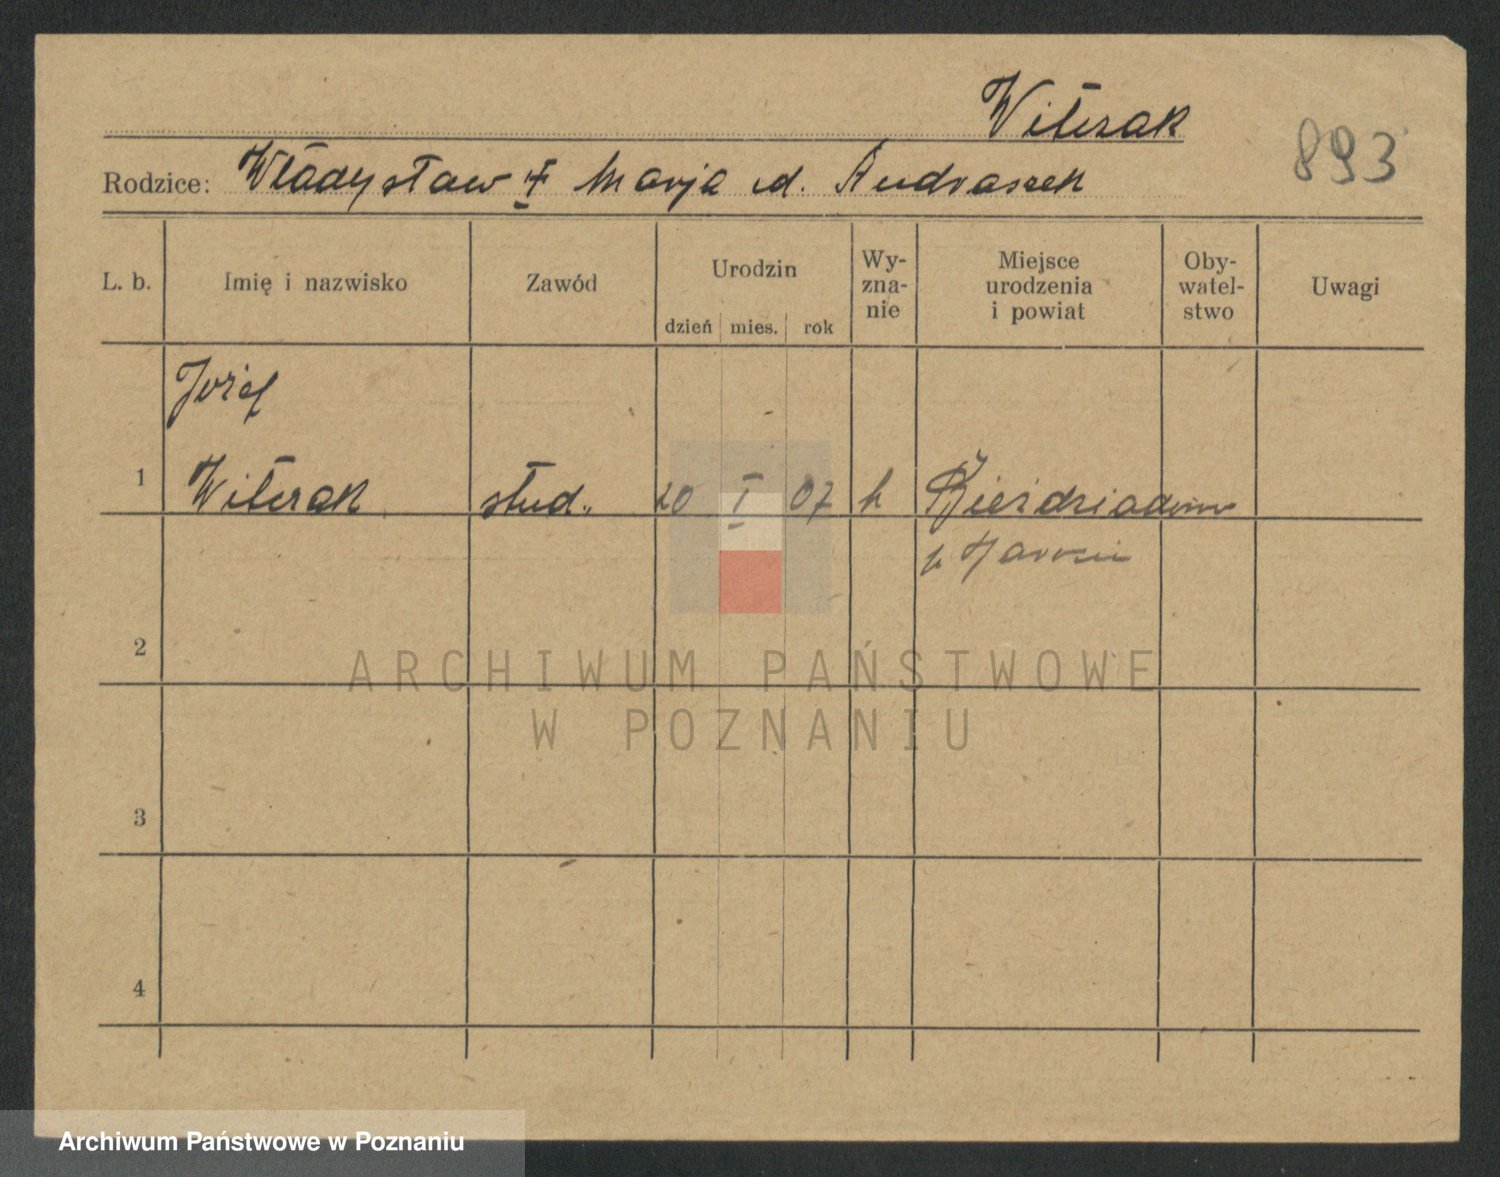 Witczak
893
Rodzice: Władysław i Marja ud. Andraszek
L. b.
Imię i nazwisko
Zawód
Urodzin
dzień mies. rok
Wy-
zna-
nie
Miejsce
urodzenia
i powiat
Oby-
watel-
stwo
Uwagi
Józef
1 Witczak stud. 20 I 07 k
p Jarocin
2
ARCHIWUM PAŃSTWOWE
W POZNANIU
3
4
Archiwum Państwowe w Poznaniu